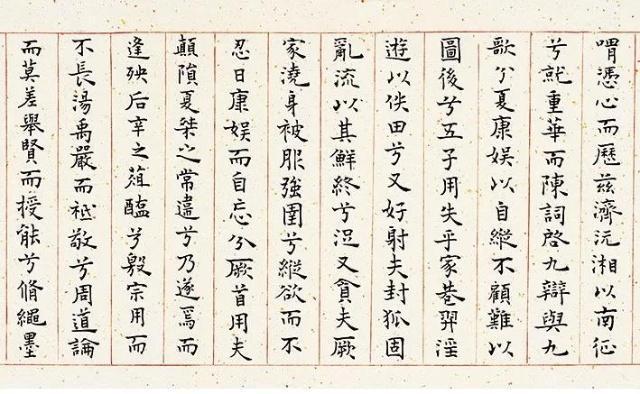 喟憑心而歷茲濟沅湘以南征
兮就重華而陳詞啓九辯與九
歌兮夏康娛以自縱不顧難以
圖後兮五子用失乎家巷羿淫
遊以佚田兮又好射夫封狐固
亂流以其鮮終兮浞又貪夫厥
家澆身被服強圉兮縱欲而不
忍日康娛而自忘兮厥首用夫
顛隕夏桀之常違兮乃遂焉而
逢殃后辛之菹醢兮殷宗用而
不長湯禹嚴而祗敬兮周道論
而莫差舉賢而授能兮脩繩墨